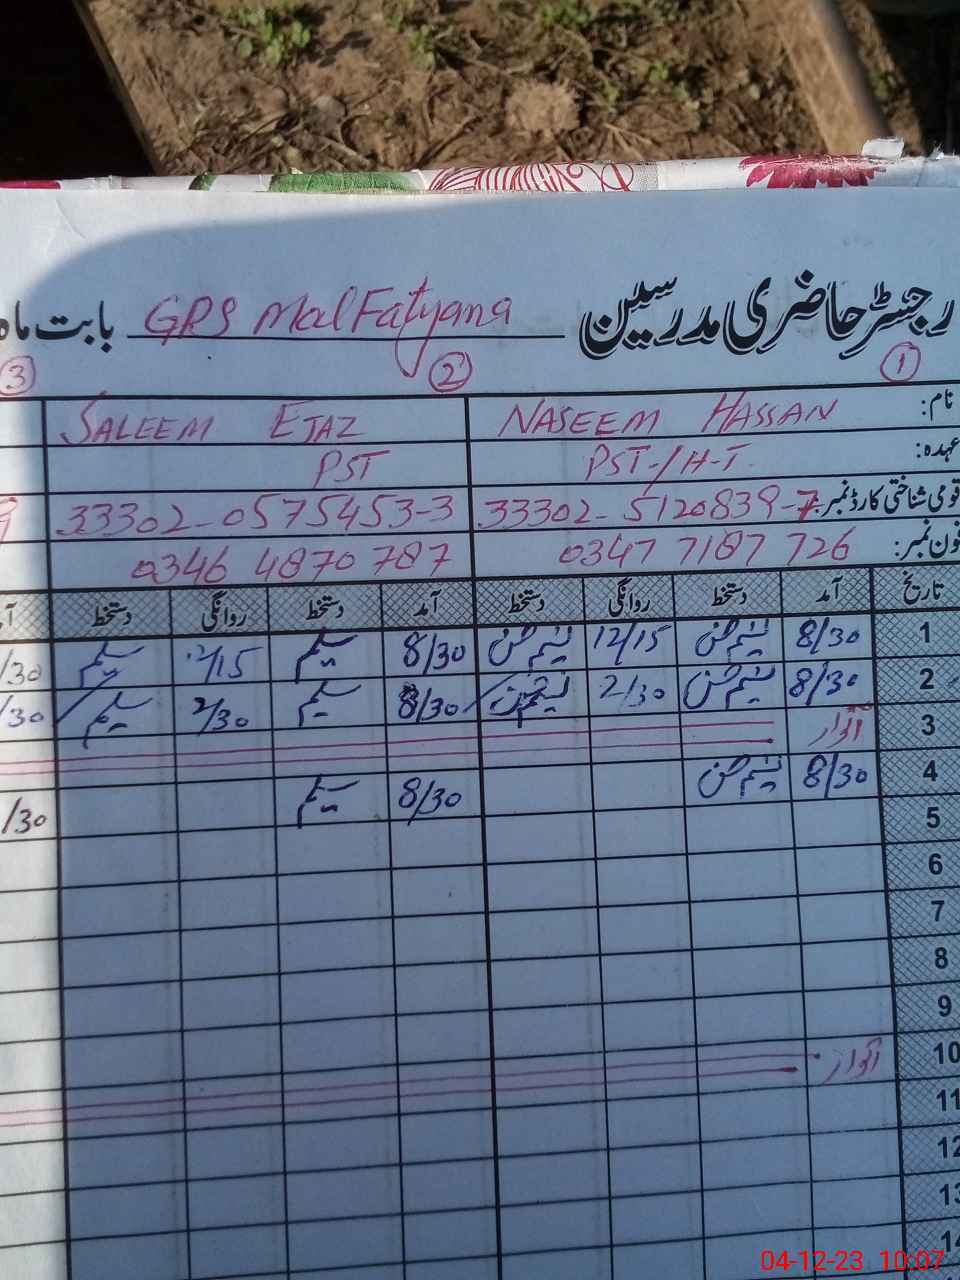 رجسٹر حاضری مدرسین GPS Mal Fatyana بابت ماہ
1 2 3
نام: NASEEM HASSAN SALEEM EJAZ
عہدہ: PST-/H-T. PST
قومی شناختی کارڈ نمبر: 33302-5120839-7 33302-0575453-3 9
فون نمبر: 0347 7187 726 0346 4870 787
تاریخ آمد دستخط روانگی دستخط آمد دستخط روانگی دستخط
1 8/30 نسیم حسن 12/15 نسیم حسن 8/30 سلیم 12/15 سلیم /30
2 8/30 نسیم حسن 2/30 نسیم حسن 8/30 سلیم 2/30 سلیم /30
3 اتوار
4 8/30 نسیم حسن 8/30 سلیم /30
5
6
7
8
9
10 اتوار
11
12
13
14
04-12-23 10:07